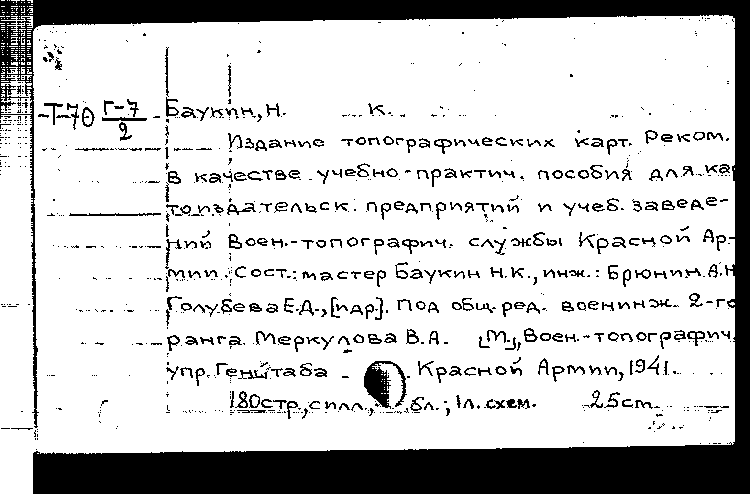 Т-70 Г-7/2 Баукин, Н. К.
Издание топографических карт. Реком.
в качестве учебно-практич. пособия для кар
тоиздательск. предприятий и учеб. заведе-
ний Воен.-топографич. службы Красной Ар-
мии. Сост.: мастер Баукин Н.К., инж.: Брюнин А.Н
Голубева Е.Д., [и др]. Под общ. ред. военинж. 2-го
ранга Меркулова В.А. [М.], Воен.-топографич.
упр. Генштаба Красной Армии, 1941.
180 стр, с илл., бл.; 1 л. схем. 25 cm.